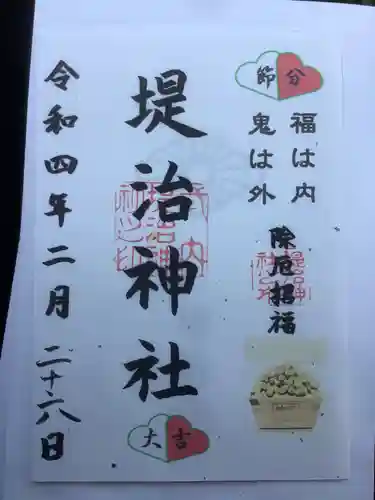 節分
福は内
鬼は外
除厄招福
堤治神社
大吉
令和四年二月二十六日